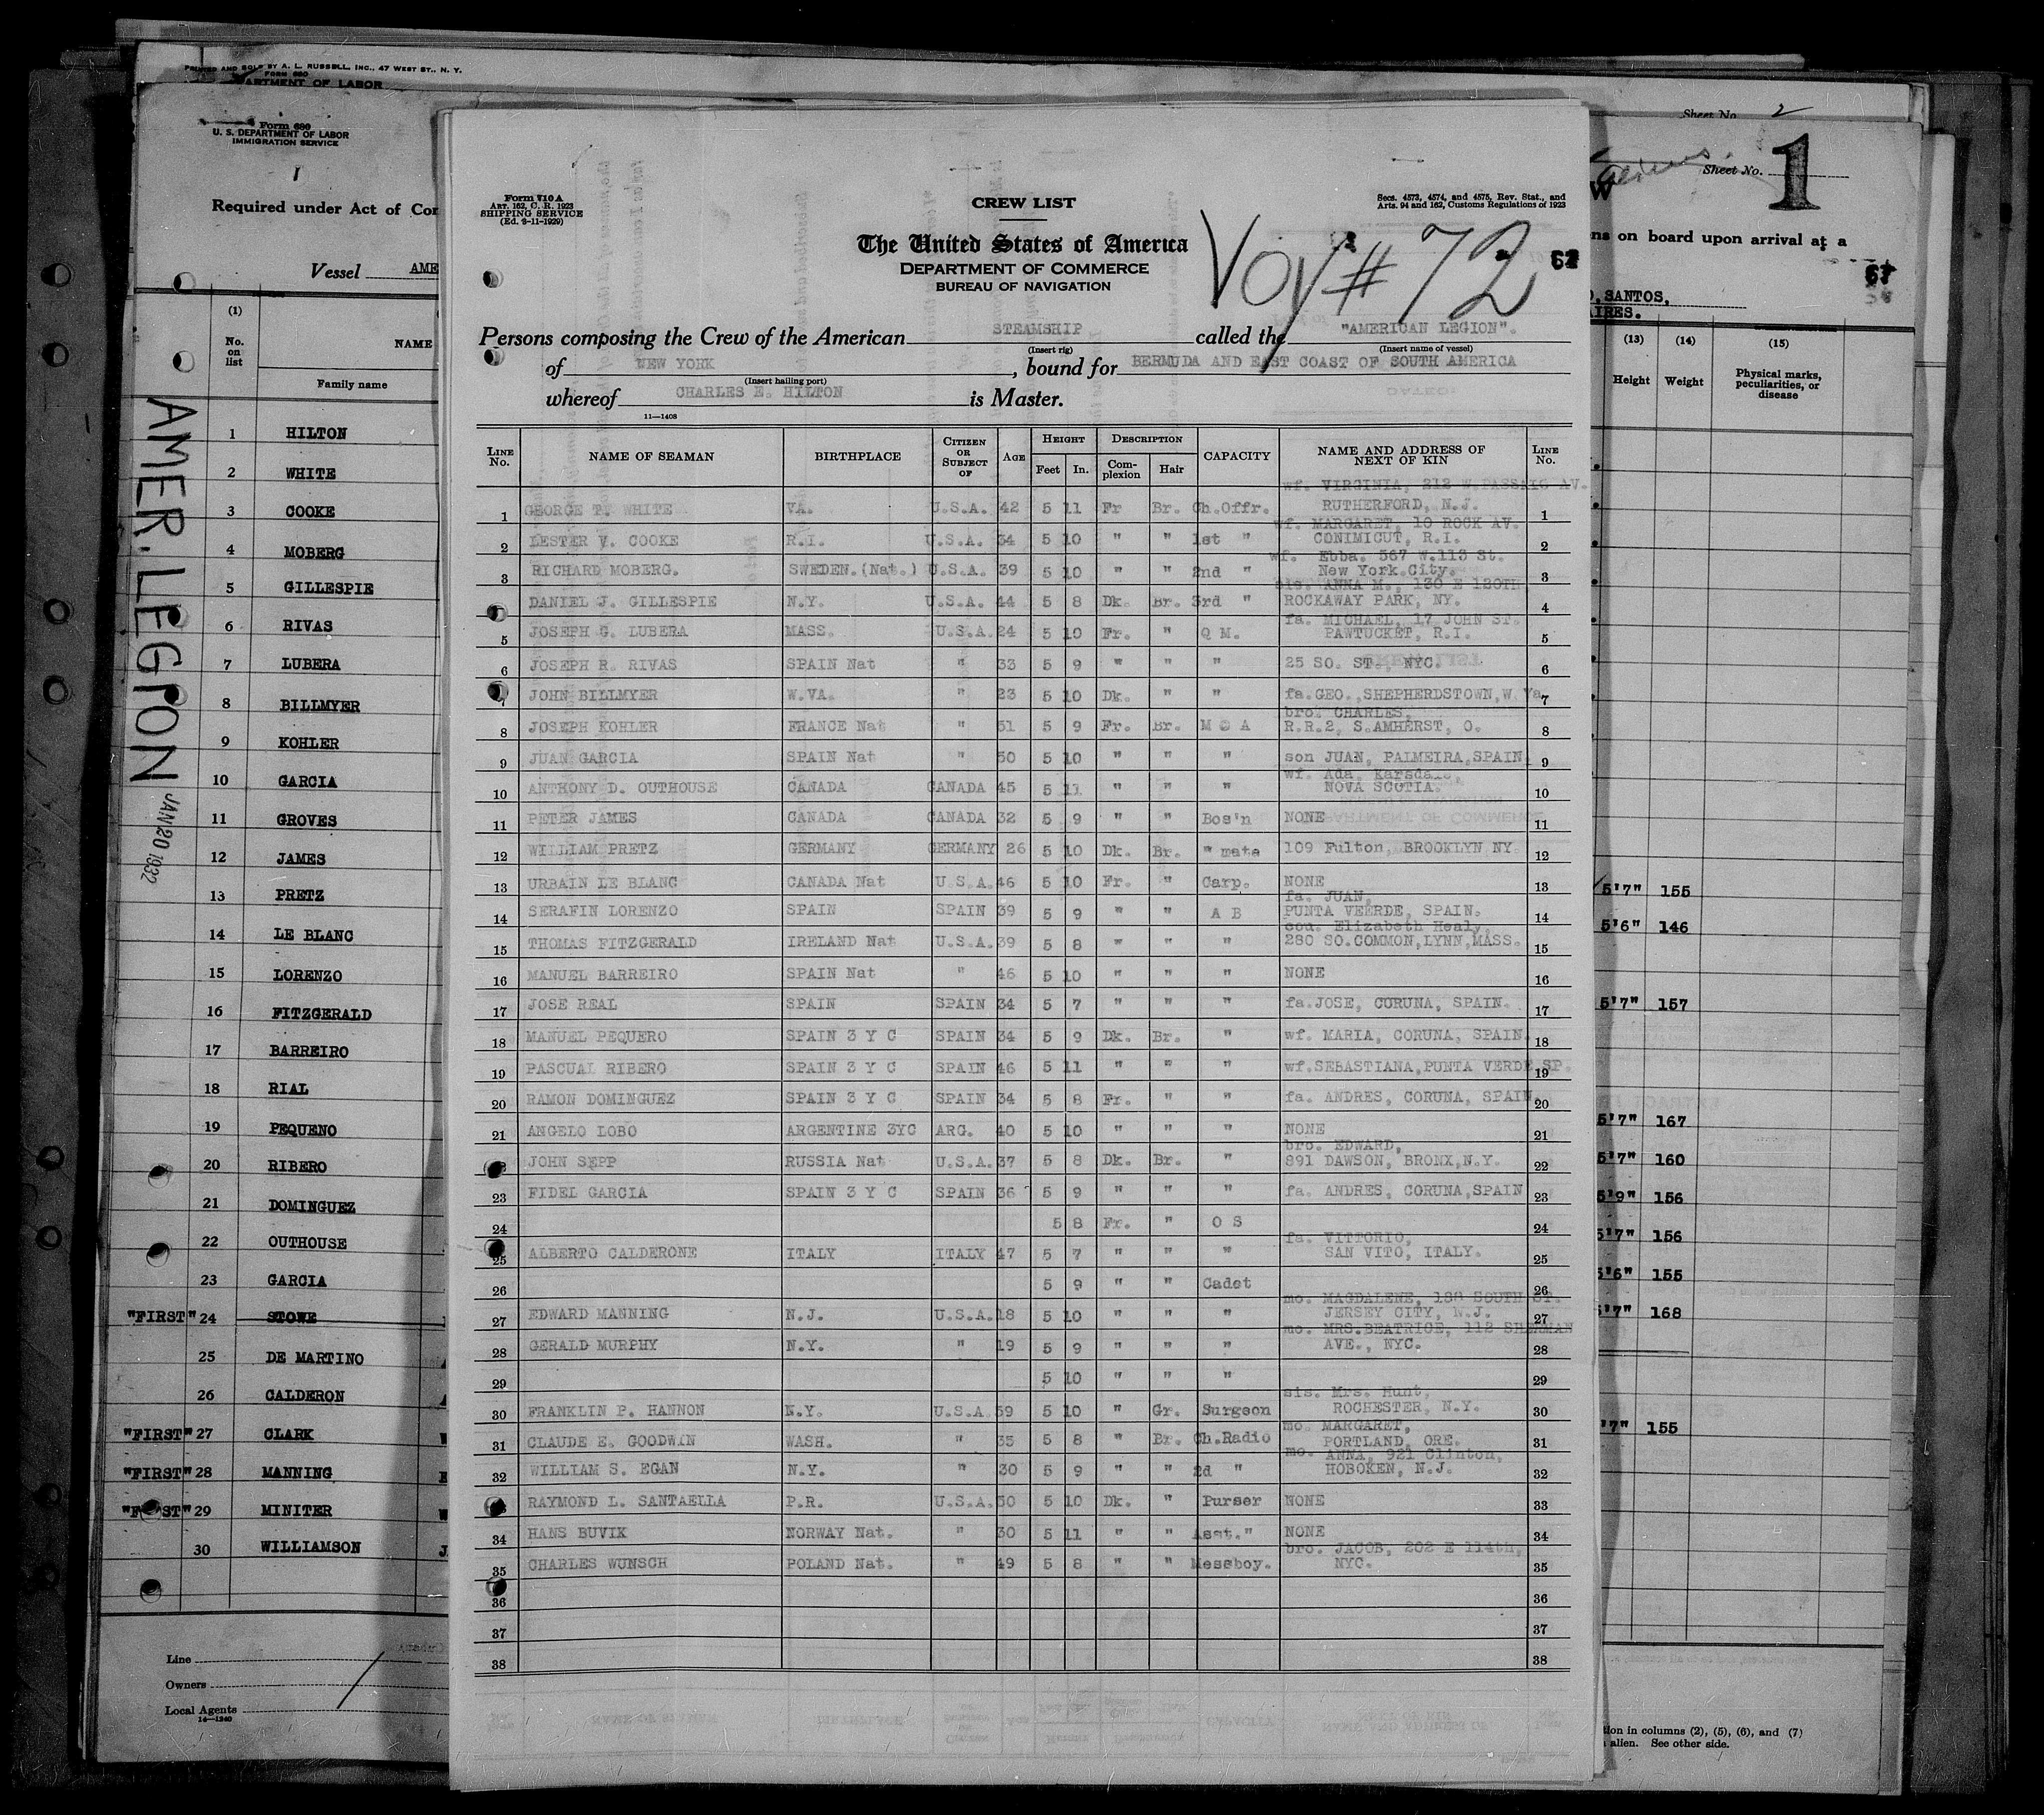 PRINTED AND SOLD BY A. L. RUSSELL, INC., 47 WEST ST., N. Y.
FORM 680
DEPARTMENT OF LABOR
Form 680
U. S. DEPARTMENT OF LABOR
IMMIGRATION SERVICE
Required under Act of Con
Vessel AME
(1)
No. on list
NAME
Family name
1 HILTON
2 WHITE
3 COOKE
4 MOBERG
5 GILLESPIE
6 RIVAS
7 LUBERA
8 BILLMYER
9 KOHLER
10 GARCIA
11 GROVES
12 JAMES
13 PRETZ
14 LE BLANC
15 LORENZO
16 FITZGERALD
17 BARREIRO
18 RIAL
19 PEQUENO
20 RIBERO
21 DOMINGUEZ
22 OUTHOUSE
23 GARCIA
"FIRST" 24 STOWE
25 DE MARTINO
26 CALDERON
"FIRST" 27 CLARK
"FIRST" 28 MANNING
"FIRST" 29 MINITER
30 WILLIAMSON
Line
Owners
Local Agents
14—1240
AMER. LEGION
JAN 20 1932
Form 710 A
ART. 162, C. R. 1923
SHIPPING SERVICE
(Ed. 3-11-1929)
CREW LIST
Secs. 4573, 4574, and 4575, Rev. Stat., and
Arts. 94 and 162, Customs Regulations of 1923
The United States of America
DEPARTMENT OF COMMERCE
BUREAU OF NAVIGATION
VOY # 72
Persons composing the Crew of the American STEAMSHIP called the "AMERICAN LEGION".
(Insert rig) (Insert name of vessel)
of NEW YORK, bound for BERMUDA AND EAST COAST OF SOUTH AMERICA
(Insert hailing port)
whereof CHARLES E. HILTON is Master.
11—1408
LINE No. NAME OF SEAMAN BIRTHPLACE CITIZEN OR SUBJECT OF AGE HEIGHT Feet In. DESCRIPTION Complexion Hair CAPACITY NAME AND ADDRESS OF NEXT OF KIN LINE No.
wf. VIRGINIA, 212 W.PASSAIC AV.
1 GEORGE T. WHITE VA. U.S.A. 42 5 11 Fr Br. Ch.Offr. RUTHERFORD, N.J. 1
wf. MARGARET, 10 ROCK AV.
2 LESTER V. COOKE R.I. U.S.A. 34 5 10 " " 1st " CONIMICUT, R.I. 2
wf. Ebba. 567 W.113 St.
3 RICHARD MOBERG. SWEDEN.(Nat.) U.S.A. 39 5 10 " " 2nd " New York City. 3
sis. ANNA M., 130 E 120TH
4 DANIEL J. GILLESPIE N.Y. U.S.A. 44 5 8 Dk. Br. 3rd " ROCKAWAY PARK, NY. 4
fa. MICHAEL, 17 JOHN ST.
5 JOSEPH G. LUBERA MASS. U.S.A. 24 5 10 Fr. " Q M. PAWTUCKET, R.I. 5
6 JOSEPH R. RIVAS SPAIN Nat " 33 5 9 " " " 25 SO. ST., NYC. 6
7 JOHN BILLMYER W.VA. " 23 5 10 Dk. " " fa.GEO.,SHEPHERDSTOWN,W.Va 7
bro. CHARLES,
8 JOSEPH KOHLER FRANCE Nat " 51 5 9 Fr. Br. M @ A R.R.2, S.AMHERST, O. 8
9 JUAN GARCIA SPAIN Nat " 50 5 10 " " " son JUAN, PALMEIRA,SPAIN. 9
wf. Ada, Karsdale,
10 ANTHONY D. OUTHOUSE CANADA CANADA 45 5 11 " " " NOVA SCOTIA. 10
11 PETER JAMES CANADA CANADA 32 5 9 " " Bos'n NONE 11
12 WILLIAM PRETZ GERMANY GERMANY 26 5 10 Dk. Br. " mate 109 Fulton, BROOKLYN NY. 12
13 URBAIN LE BLANC CANADA Nat U.S.A. 46 5 10 Fr. " Carp. NONE 13
fa. JUAN,
14 SERAFIN LORENZO SPAIN SPAIN 39 5 9 " " A B PUNTA VEERDE, SPAIN. 14
cou. Elizabeth Healy,
15 THOMAS FITZGERALD IRELAND Nat U.S.A. 39 5 8 " " " 280 SO.COMMON,LYNN,MASS. 15
16 MANUEL BARREIRO SPAIN Nat " 46 5 10 " " " NONE 16
17 JOSE REAL SPAIN SPAIN 34 5 7 " " " fa.JOSE, CORUNA, SPAIN. 17
18 MANUEL PEQUERO SPAIN 3 Y C SPAIN 34 5 9 Dk. Br. " wf. MARIA, CORUNA, SPAIN. 18
19 PASCUAL RIBERO SPAIN 3 Y C SPAIN 46 5 11 " " " wf.SEBASTIANA,PUNTA VERDE SP. 19
20 RAMON DOMINGUEZ SPAIN 3 Y C SPAIN 34 5 8 Fr. " " fa. ANDRES, CORUNA, SPAIN. 20
21 ANGELO LOBO ARGENTINE 3YC ARG. 40 5 10 " " " NONE 21
bro. EDWARD,
JOHN SEPP RUSSIA Nat U.S.A. 37 5 8 Dk. Br. " 891 DAWSON, BRONX,N.Y. 22
23 FIDEL GARCIA SPAIN 3 Y C SPAIN 36 5 9 " " " fa. ANDRES, CORUNA,SPAIN 23
24 5 8 Fr. " O S 24
fa. VITTORIO,
25 ALBERTO CALDERONE ITALY ITALY 47 5 7 " " " SAN VITO, ITALY. 25
26 5 9 " " Cadet 26
mo. MAGDALENE, 188 SOUTH ST.
27 EDWARD MANNING N.J. U.S.A. 18 5 10 " " " JERSEY CITY, N.J. 27
mo. MRS.BEATRICE, 112 SHERMAN
28 GERALD MURPHY N.Y. " 19 5 9 " " " AVE., NYC. 28
29 5 10 " " " 29
sis. Mrs. Hunt,
30 FRANKLIN P. HANNON N.Y. U.S.A. 59 5 10 " Gr. Surgeon ROCHESTER, N.Y. 30
mo. MARGARET,
31 CLAUDE E. GOODWIN WASH. " 35 5 8 " Br. Ch.Radio PORTLAND, ORE. 31
mo. ANNA, 921 Clinton,
32 WILLIAM S. EGAN N.Y. " 30 5 9 " " 2d " HOBOKEN, N.J. 32
RAYMOND L. SANTAELLA P.R. U.S.A. 50 5 10 Dk. " Purser NONE 33
34 HANS BUVIK NORWAY Nat. " 30 5 11 " " Asst." NONE 34
bro. JACOB, 202 E 114th,
35 CHARLES WUNSCH POLAND Nat. " 49 5 8 " " Messboy. NYC. 35
36 36
37 37
38 38
Sheet No. 2
Sheet No. 1
ns on board upon arrival at a
67
O, SANTOS,
AIRES.
(13) (14) (15)
Height Weight Physical marks, peculiarities, or disease
5'7" 155
5'6" 146
5'7" 157
5'7" 167
5'7" 160
5'9" 156
5'7" 156
5'6" 155
5'7" 168
'7" 155
tion in columns (2), (5), (6), and (7)
alien. See other side.